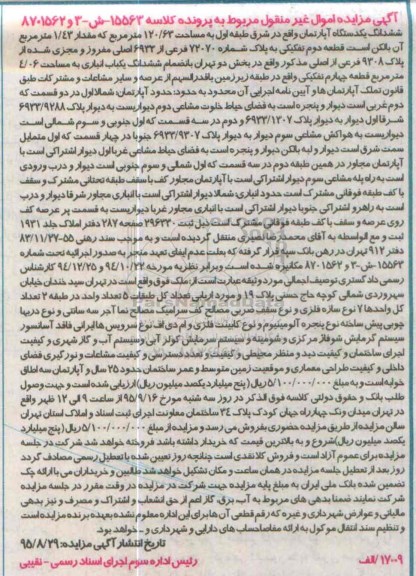 آگهی مزایده اموال غیر منقول مربوط به پرونده کلاسه ۱۵۵۶۳-ش-۳ و ۸۷۰۱۵۶۲
ششدانگ یکدستگاه آپارتمان واقع در شرق طبقه اول به مساحت ۱۲۰/۶۳ متر مربع که مقدار ۱/۴۳ متر مربع
آن بالکن است قطعه دوم تفکیکی به پلاک شماره ۷۲۰۷۰ فرعی از ۶۹۳۳ اصلی مفروز و مجزی شده از
پلاک ۹۳۰۸ فرعی از اصلی مذکور واقع در بخش دو تهران بانضمام ششدانگ یکباب انباری به مساحت ۴/۰۶
متر مربع قطعه چهارم تفکیکی واقع در طبقه زیرزمین باقدرالسهم از عرصه و سایر مشاعات و مشترکات طبق
قانون تملک آپارتمان ها و آیین نامه اجرایی آن محدود به حدود: حدود آپارتمان: شمالا اول در دو قسمت که
دوم غربی است دیوار و پنجره است به فضای حیاط خلوت مشاعی دوم دیواریست به دیوار پلاک ۶۹۳۳/۹۲۸۸
شرقا اول دیوار به دیوار پلاک ۶۹۳۳/۱۲۰۷ و دوم در سه قسمت که اول جنوبی و سوم شمالی است
دیواریست به هواکش مشاعی سوم دیوار به دیوار پلاک ۶۹۳۳/۹۳۰۷ جنوبا در چهار قسمت که اول متمایل
سمت شرق است دیوار و لبه بالکن دیوار و پنجره است به فضای حیاط مشاعی غربا اول دیوار اشتراکی است با
آپارتمان مجاور در همین طبقه دوم در سه قسمت که اول شمالی و سوم جنوبی است دیوار و درب ورودی
است به راه پله مشاعی سوم دیوار اشتراکی است با آپارتمان مجاور کف با سقف طبقه تحتانی مشترک و سقف
با کف طبقه فوقانی مشترک است حدود انباری: شمالا دیوار اشتراکی است با انباری مجاور شرقا دیوار و درب
است به راهرو اشتراکی جنوبا دیوار اشتراکی است با انباری مجاور غربا دیواریست به قسمت پر عرصه کف
روی عرصه و سقف با کف طبقه فوقانی مشترک است ذیل ثبت ۲۹۶۳۳۰ صفحه ۲۸۷ دفتر املاک جلد ۱۹۳۱
ثبت و مع الواسطه به آقای محمدرضا نصیری منتقل گردیده است و به موجب سند رهنی ۵۵-۸۳/۱۱/۳۷
دفتر ۹۱۲ تهران در رهن بانک سپه قرار گرفته که بعلت عدم ایفای تعهد منجر به صدور اجرائیه تحت شماره
۱۵۵۶۳-ش-۳ و ۸۷۰۱۵۶۲ مکانیزه شده است و برابر نظریه مورخه ۹۴/۱۰/۲۲ و ۹۴/۱۲/۲۵ کارشناس
رسمی دادگستری توصیف اجمالی مورد وثیقه عبارت است از: ملک فوق واقع است در تهران سید خندان خیابان
سهروردی شمالی کوچه حاج حسنی پلاک ۱۹ و مورد ارزیابی تعداد کل طبقات ۵ تعداد واحد در طبقه ۲ تعداد
کل واحدها ۷ نوع سازه فلزی و نوع سقف ضربی مصالح کف سرامیک مصالح نما آجر سه سانتی و نوع دربها
چوبی پیش ساخته نوع پنجره آلومینیوم و نوع کابینت فلزی و ام دی اف نوع سرویس ها ایرانی فاقد آسانسور
سیستم گرمایش شوفاژ مرکزی و شومینه و سیستم سرمایش کولر آبی و سیستم آب و گاز شهری و کیفیت
اجرای ساختمان و کیفیت دید و منظر محیطی و کیفیت و تعدد دسترسی و کیفیت مشاعات و نورگیری فضای
داخلی و کیفیت طراحی معماری و موقعیت زمین متوسط و عمر ساختمان حدود ۲۵ سال و آپارتمان سه اطاق
خوابه است و به مبلغ ۵/۱۰۰/۰۰۰/۰۰۰ ریال (پنج میلیارد یکصد میلیون ریال) ارزیابی شده است و جهت وصول
طلب بانک و حقوق دولتی کلاسه فوق الذکر در روز سه شنبه مورخ ۹۵/۹/۱۶ از ساعت ۹ الی ۱۲ ظهر واقع
در تهران میدان ونک چهارراه جهان کودک پلاک ۳۴ ساختمان معاونت اجرای ثبت اسناد و املاک استان تهران
سالن مزایده از طریق مزایده حضوری بفروش می رسد و مزایده از مبلغ ۵/۱۰۰/۰۰۰/۰۰۰ ریال (پنج میلیارد
یکصد میلیون ریال) شروع و به بالاترین قیمت که خریدار داشته باشد فروخته خواهد شد شرکت در جلسه
مزایده برای عموم آزاد است و فروش کلا نقدی است چنانچه روز تعیین شده با تعطیل رسمی مصادف گردد
روز بعد از تعطیل جلسه مزایده در همان ساعت و مکان تشکیل خواهد شد طالبین و خریداران می بایست با ارائه چک
تضمین شده بانک ملی ایران به مبلغ پایه مزایده جهت شرکت در مزایده در وقت مقرر در جلسه مزایده
شرکت نمایند ضمنا بدهی های مربوط به آب برق گاز اعم از حق انشعاب و اشتراک و مصرف و نیز بدهی
مالیاتی و عوارض شهرداری و غیره که رقم قطعی آن ها برای این اداره معلوم نشده بعهده برنده مزایده است
و تنظیم سند انتقال موکول به ارائه مفاصاحساب های دارایی و شهرداری و ... خواهد بود.
تاریخ انتشار آگهی مزایده: ۹۵/۸/۲۹
رئیس اداره سوم اجرای اسناد رسمی - نقیبی
۱۷۰۰۹/الف